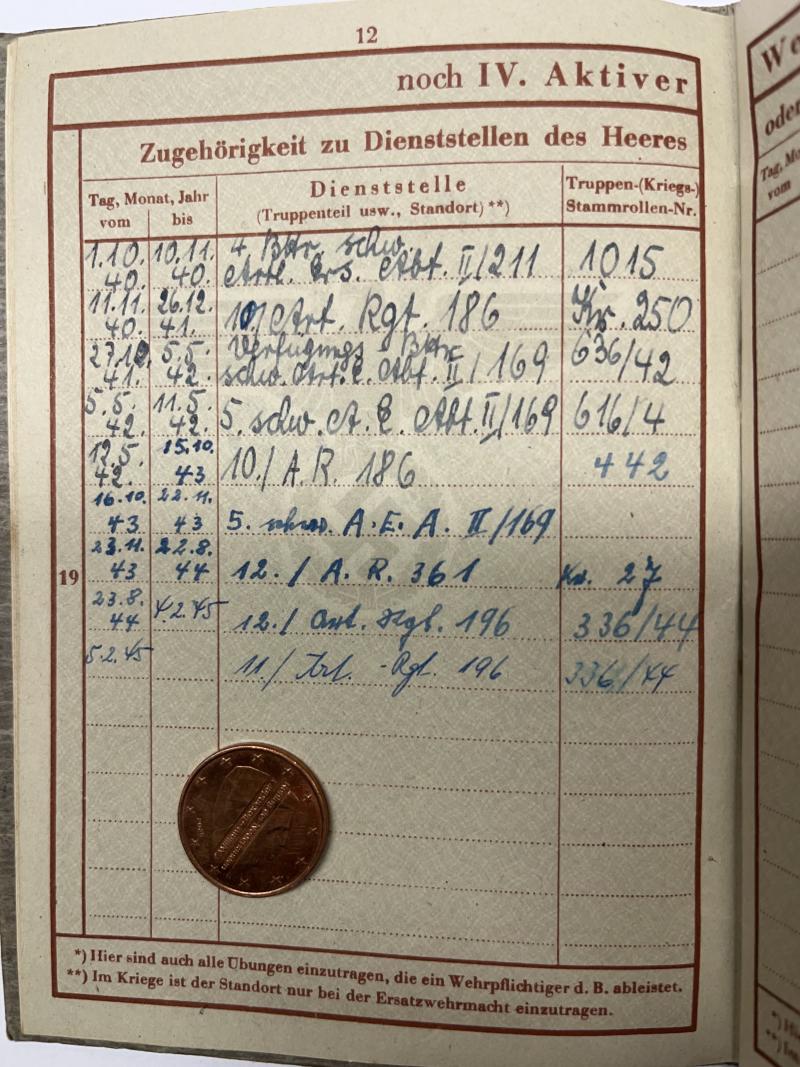 12
noch IV. Aktiver
Zugehörigkeit zu Dienststellen des Heeres
Tag, Monat, Jahr
vom
bis
Dienststelle
(Truppenteil usw., Standort) **)
Truppen-(Kriegs-)
Stammrollen-Nr.
1.10. 40. 10.11. 40. 4. Bttr. schw.
Artl. Ers. Abt. II/211 1015
11.11. 40. 26.12. 41. 10/Art. Rgt. 186 Kr. 250
41. 5.5. 42. Verfügungs-Bttr.
schw. Art. E. Abt. II/169 636/42
5.5. 42. 11.5. 42. 5. schw. A. E. Abt. II/169 616/4
12.5. 42. 15.10. 43 10./A.R. 186 442
16.10. 43 22.11. 43 5. schw. A.E.A. II/169
23.11. 43 22.8. 44 12./A.R. 361 27
23.8. 44 4.2.45 12./Art. Rgt. 196 336/44
5.2.45 11./Art.-Rgt. 196 336/44
19
*) Hier sind auch alle Übungen einzutragen, die ein Wehrpflichtiger d. B. ableistet.
**) Im Kriege ist der Standort nur bei der Ersatzwehrmacht einzutragen.
We
oder
Tag, Mo
vom